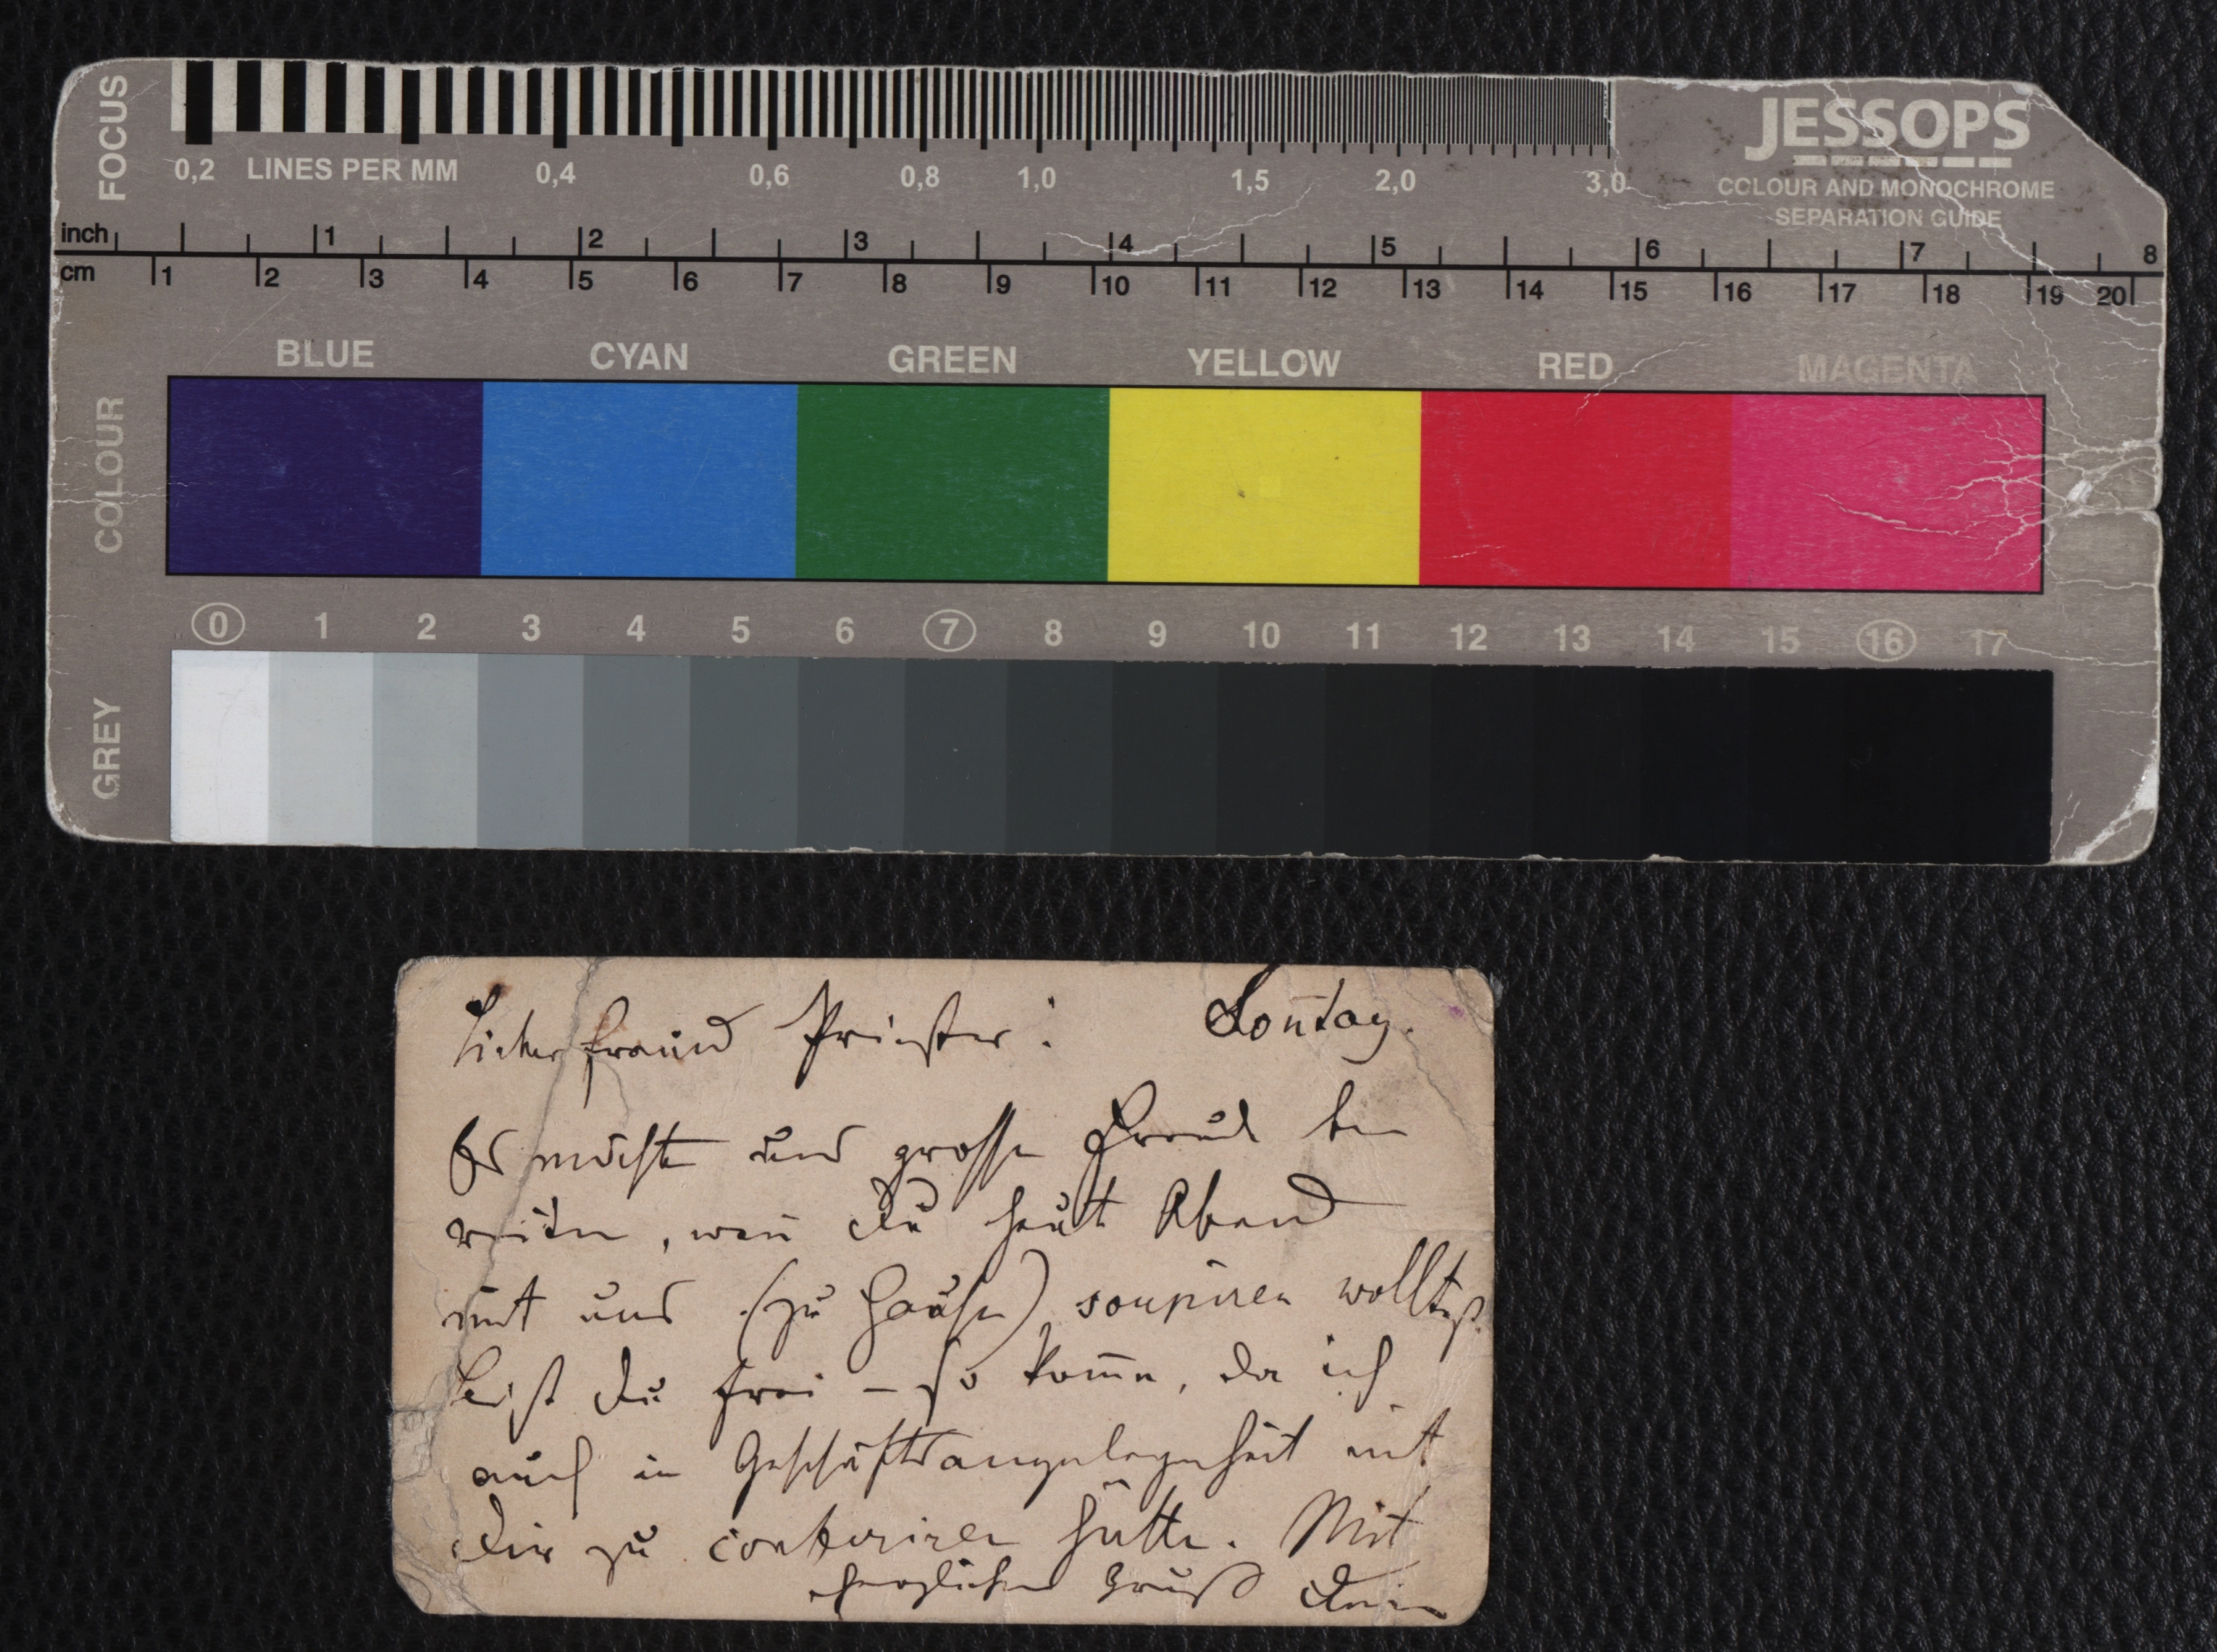 FOCUS
JESSOPS
0,2 LINES PER MM 0,4 0,6 0,8 1,0 1,5 2,0 3,0
COLOUR AND MONOCHROME
SEPARATION GUIDE
inch 1 2 3 4 5 6 7 8
cm 1 2 3 4 5 6 7 8 9 10 11 12 13 14 15 16 17 18 19 20
BLUE CYAN GREEN YELLOW RED MAGENTA
COLOUR
0 1 2 3 4 5 6 7 8 9 10 11 12 13 14 15 16 17
GREY
Lieber Freund Priester! Son̄tag.
Es möchte uns grosse Freude be
reiten, wen̄ Du heut Abend
mit uns (zu Hause) soupiren wolltest.
Bist Du frei – so kom̄e, da ich
auch in Geschäftsangelegenheit mit
Dir zu conferiren hätte. Mit
herzlichem Gruß Dein